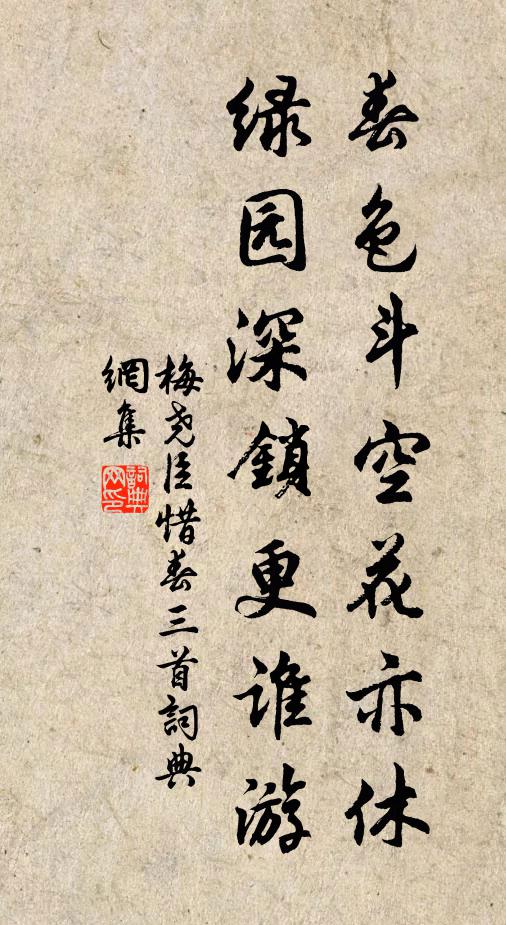 春色斗空花亦休
绿园深鎖更谁游
梅尧臣惜春三首詞典
網集
詞典网印